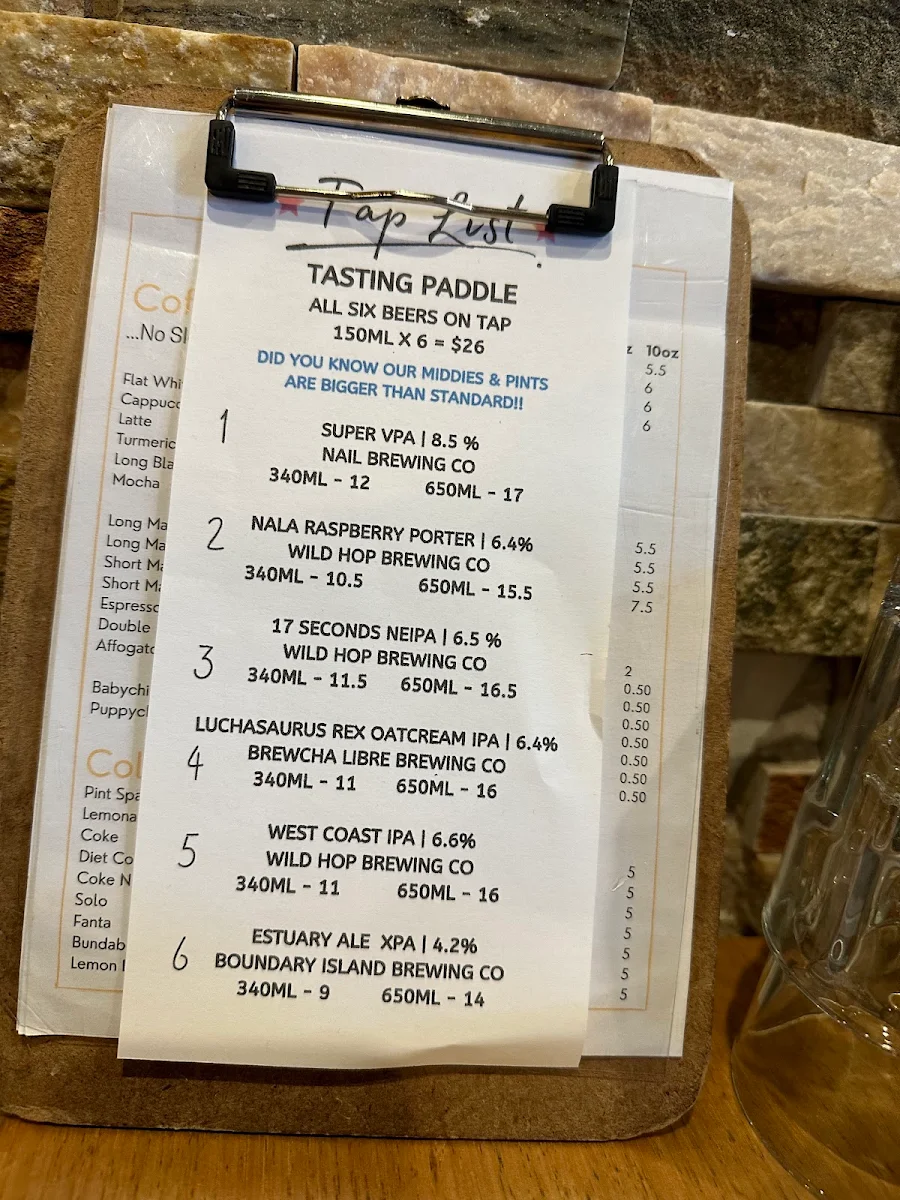 Tap List
TASTING PADDLE
ALL SIX BEERS ON TAP
150ML X 6 = $26
DID YOU KNOW OUR MIDDIES & PINTS
ARE BIGGER THAN STANDARD!!
1
SUPER VPA | 8.5 %
NAIL BREWING CO
340ML - 12 650ML - 17
2
NALA RASPBERRY PORTER | 6.4%
WILD HOP BREWING CO
340ML - 10.5 650ML - 15.5
3
17 SECONDS NEIPA | 6.5 %
WILD HOP BREWING CO
340ML - 11.5 650ML - 16.5
4
LUCHASAURUS REX OATCREAM IPA | 6.4%
BREWCHA LIBRE BREWING CO
340ML - 11 650ML - 16
5
WEST COAST IPA | 6.6%
WILD HOP BREWING CO
340ML - 11 650ML - 16
6
ESTUARY ALE XPA | 4.2%
BOUNDARY ISLAND BREWING CO
340ML - 9 650ML - 14
...No
Flat
Latte
Turmeric
Long
Mocha
Long
Long
Short
Short
Double
Pint
Coke
Diet
Coke
Solo
Fanta
Lemon
10oz
5.5
6
6
6
5.5
5.5
5.5
7.5
2
0.50
0.50
0.50
0.50
0.50
0.50
0.50
5
5
5
5
5
5
5